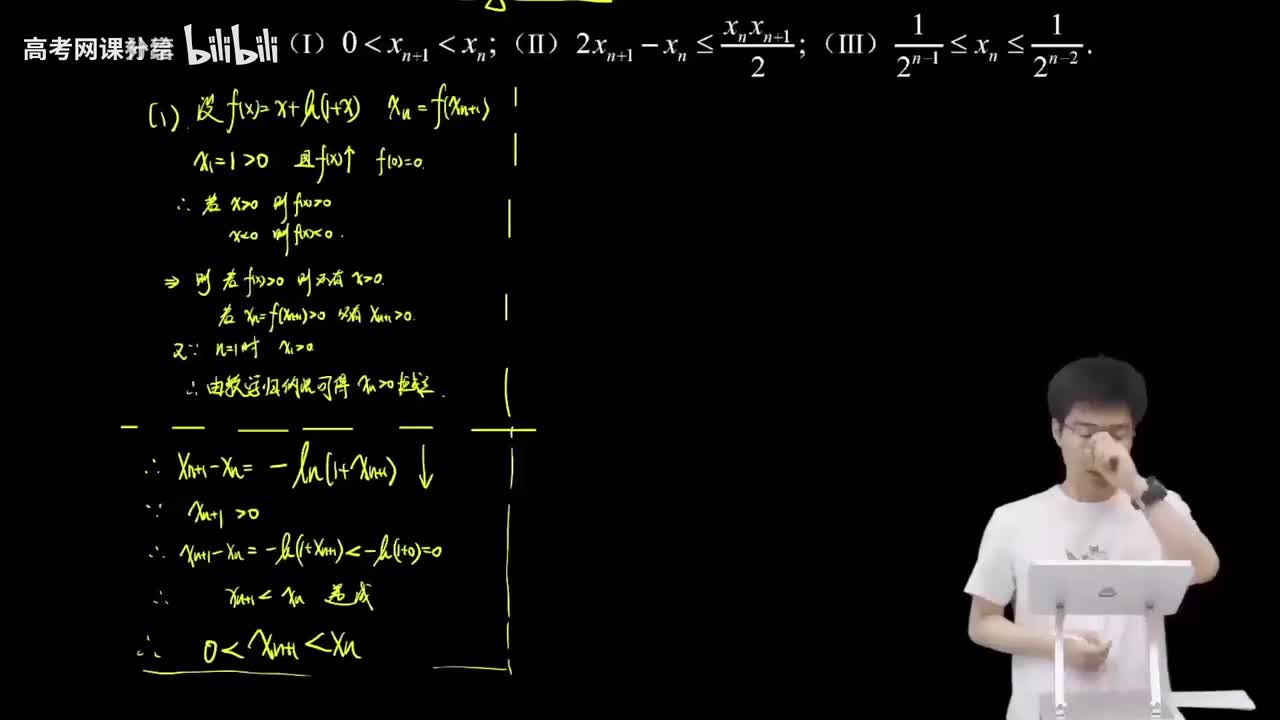 高考网课补给 bilibili (Ⅰ) 0 < x_{n+1} < x_n; (Ⅱ) 2x_{n+1} - x_n ≤ \frac{x_n x_{n+1}}{2}; (Ⅲ) \frac{1}{2^{n-1}} ≤ x_n ≤ \frac{1}{2^{n-2}}.
(1). 设 f(x)=x+ln(1+x) x_n=f(x_{n+1})
x_1=1>0 且f(x)↑ f(0)=0.
∴ 若 x>0 则 f(x)>0
x<0 则 f(x)<0.
⇒ 则 若 f(x)>0 则必有 x>0.
若 x_n=f(x_{n+1})>0 必有 x_{n+1}>0.
又∵ n=1时 x_1>0
∴ 由数学归纳法可得 x_n>0 恒成立.
∴ x_{n+1}-x_n= -ln(1+x_{n+1}) ↓
∵ x_{n+1}>0
∴ x_{n+1}-x_n=-ln(1+x_{n+1})<-ln(1+0)=0
∴ x_{n+1}<x_n
∴ 0<x_{n+1}<x_n